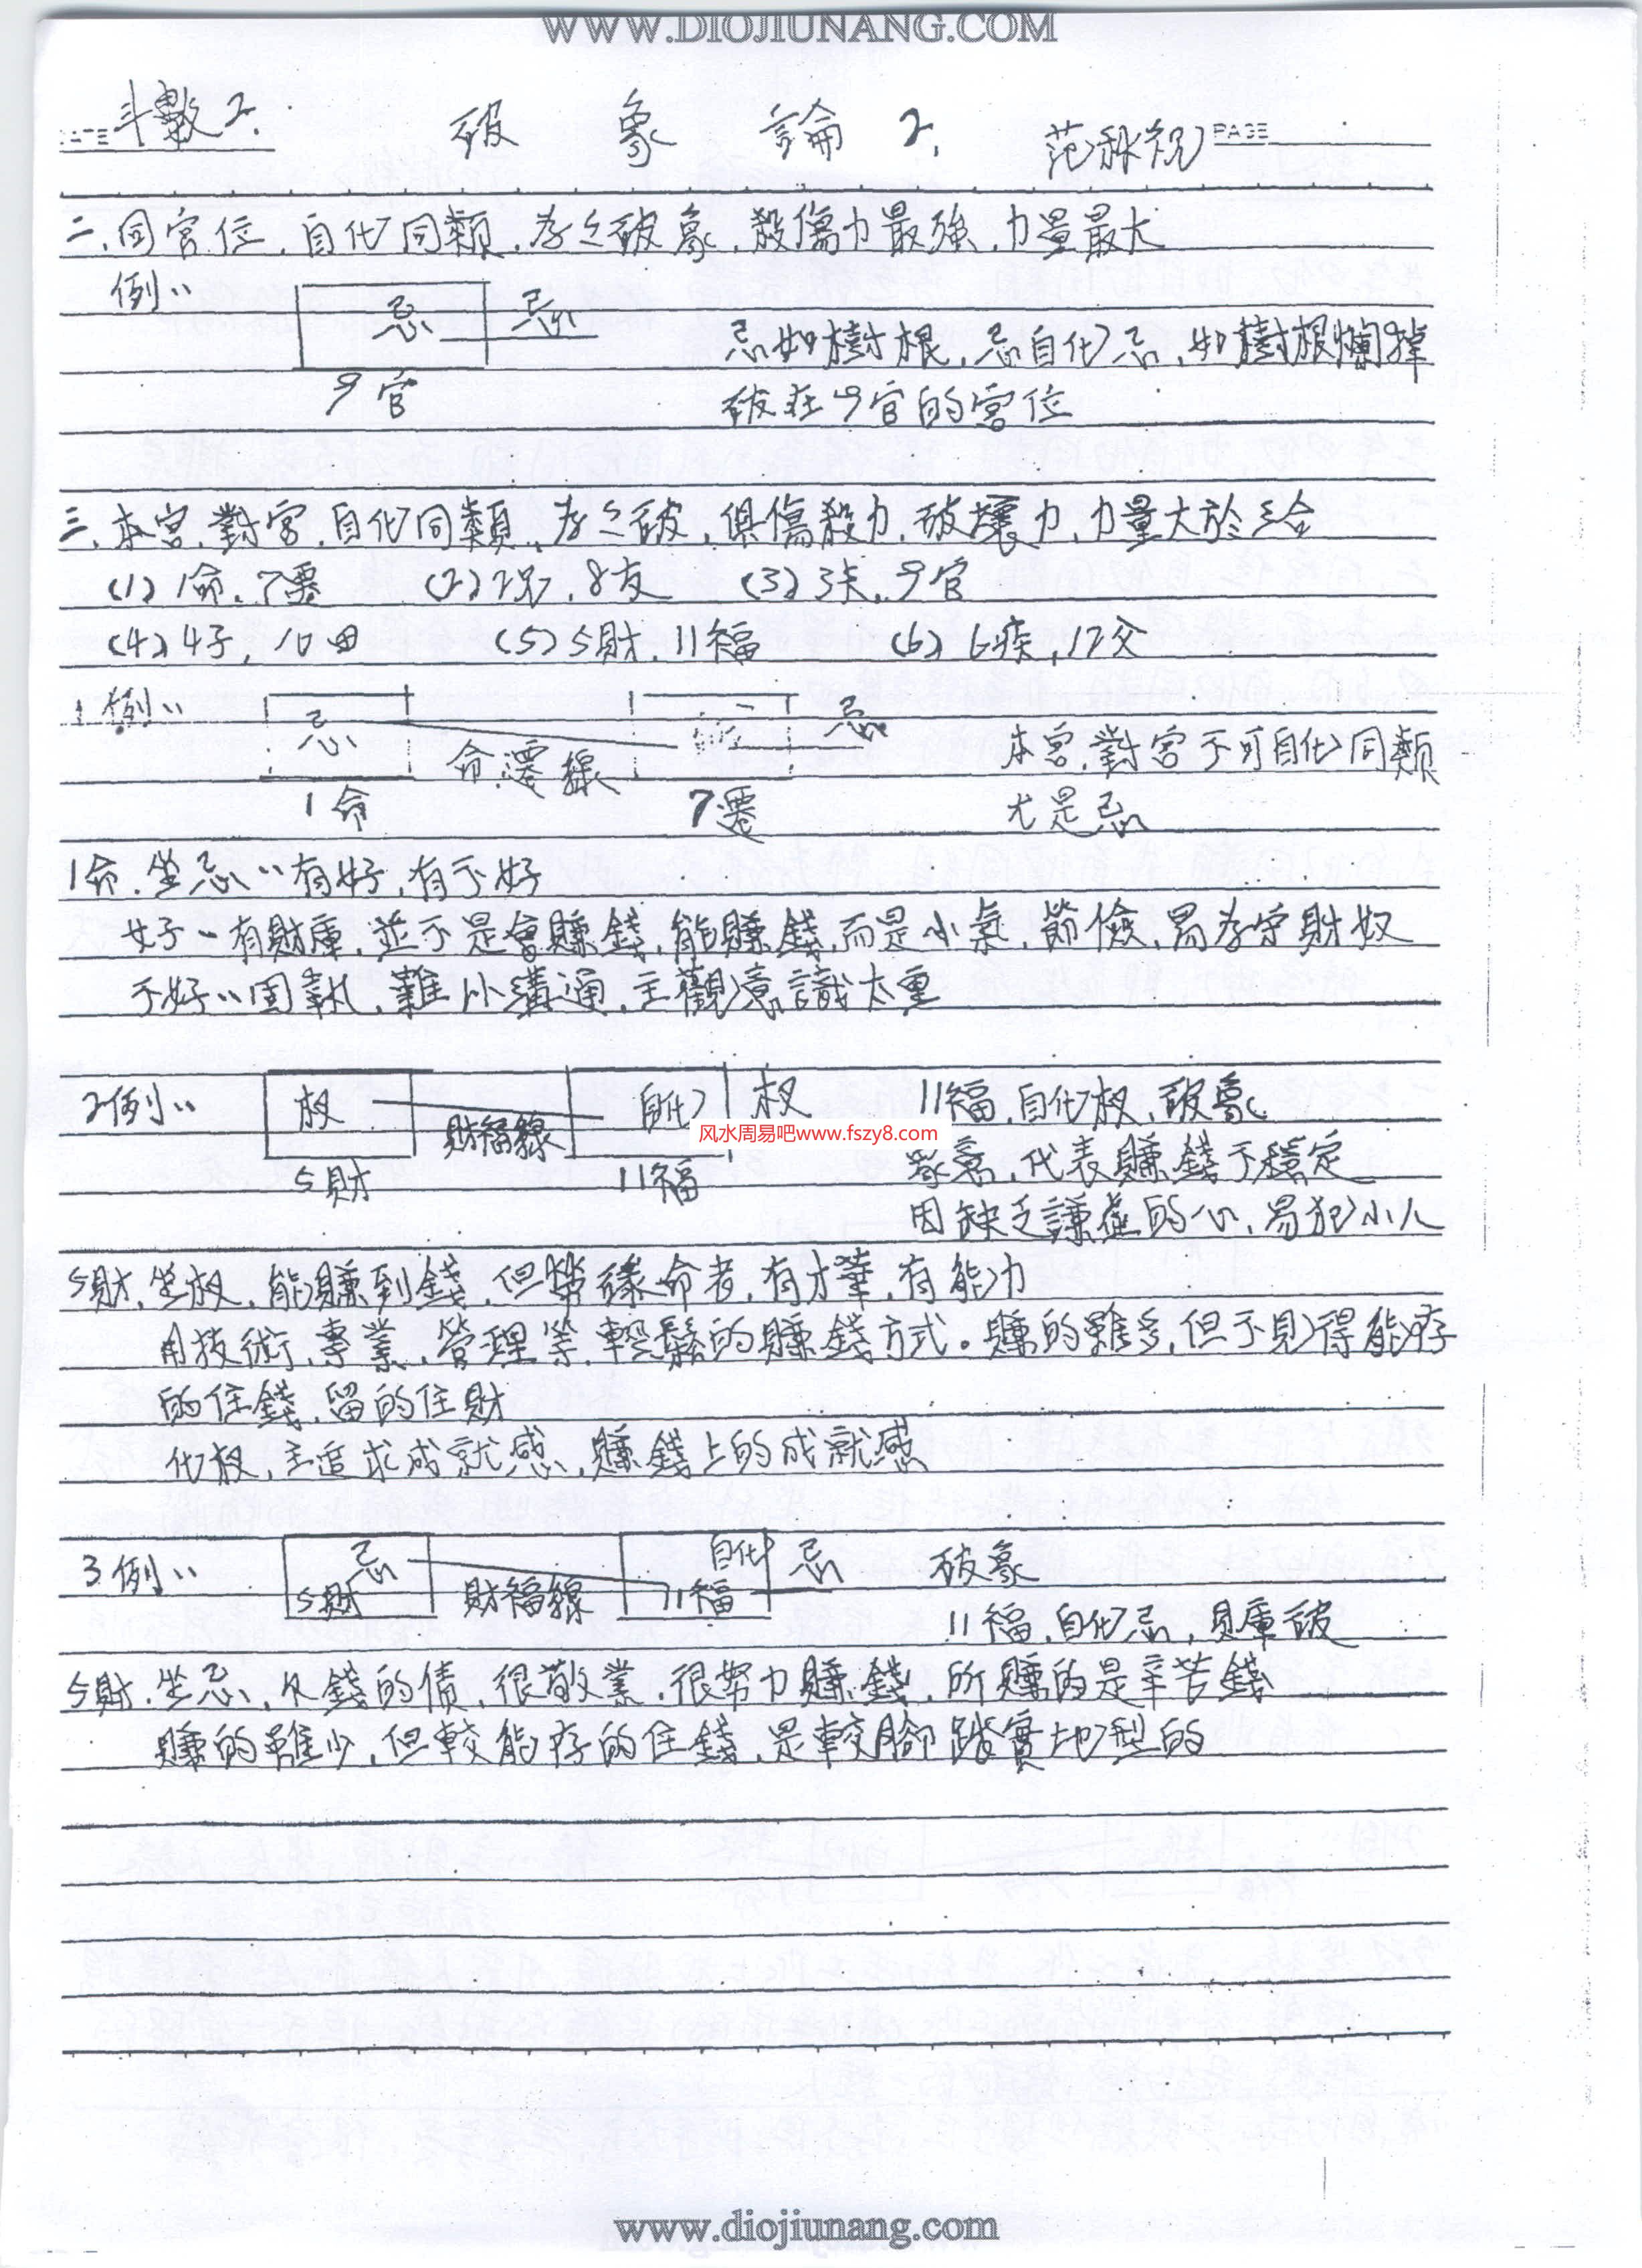 WWW.DIOJIUNANG.COM
DATE 斗數2.
破 象 論 2. 范秋祝 PAGE
二.同宮位,自化同類,為之破象,殺傷力最強,力量最大
例:
忌 忌
忌如樹根,忌自化忌,如樹根爛掉
9官
破在9官的宮位
三.本宮,對宮,自化同類,為之破,俱傷殺力,破壞力,力量大於三合
(1) 1命,7遷 (2) 2兄,8友 (3) 3夫,9官
(4) 4子,10田 (5) 5財,11福 (6) 6疾,12父
1例: 忌 命遷線 忌
本宮,對宮不可自化同類
1命 7遷 尤是忌
1命,坐忌:有好,有不好
好:有財庫,並不是會賺錢,能賺錢,而是小氣,節儉,易為守財奴
不好:固執,難以溝通,主觀意識太重
2例: 权 財福線 自化 权 11福,自化权,破象
风水周易吧www.fszy8.com
5財 11福 象意,代表賺錢不穩定
因缺乏謙虛的心,易犯小人
5財,坐权,能賺到錢,但勞祿命者,有才華,有能力
用技術,專業,管理等,輕鬆的賺錢方式。賺的雖多,但不見得能存
的住錢,留的住財
化权,主追求成就感,賺錢上的成就感
3例: 忌 自化 忌 破象
5財 財福線 11福
11福,自化忌,財庫破
5財,坐忌,欠錢的債,很敬業,很努力賺錢,所賺的是辛苦錢
賺的雖少,但較能存的住錢,是較腳踏實地型的
www.diojiunang.com